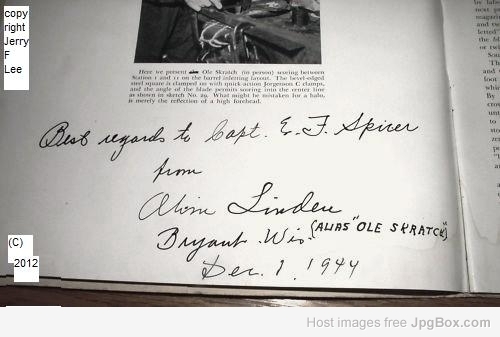 copy
right
Jerry
F
Lee
Here we present Ole Skratch (in person) scoring between
Station 1 and 11 on the barrel inletting layout. The bevel-edged
steel square is clamped on with quick-action Jorgenson C clamps,
and the angle of the blade permits scoring into the center line
as shown in sketch No. 29. What might be mistaken for a halo,
is merely the reflection of a high forehead.
Best regards to Capt. E. F. Spicer
from
Alvin Linden
Bryant Wis. (ALIAS "OLE SKRATCH")
Dec. 1, 1944
(C)
2012
Host images free JpgBox.com